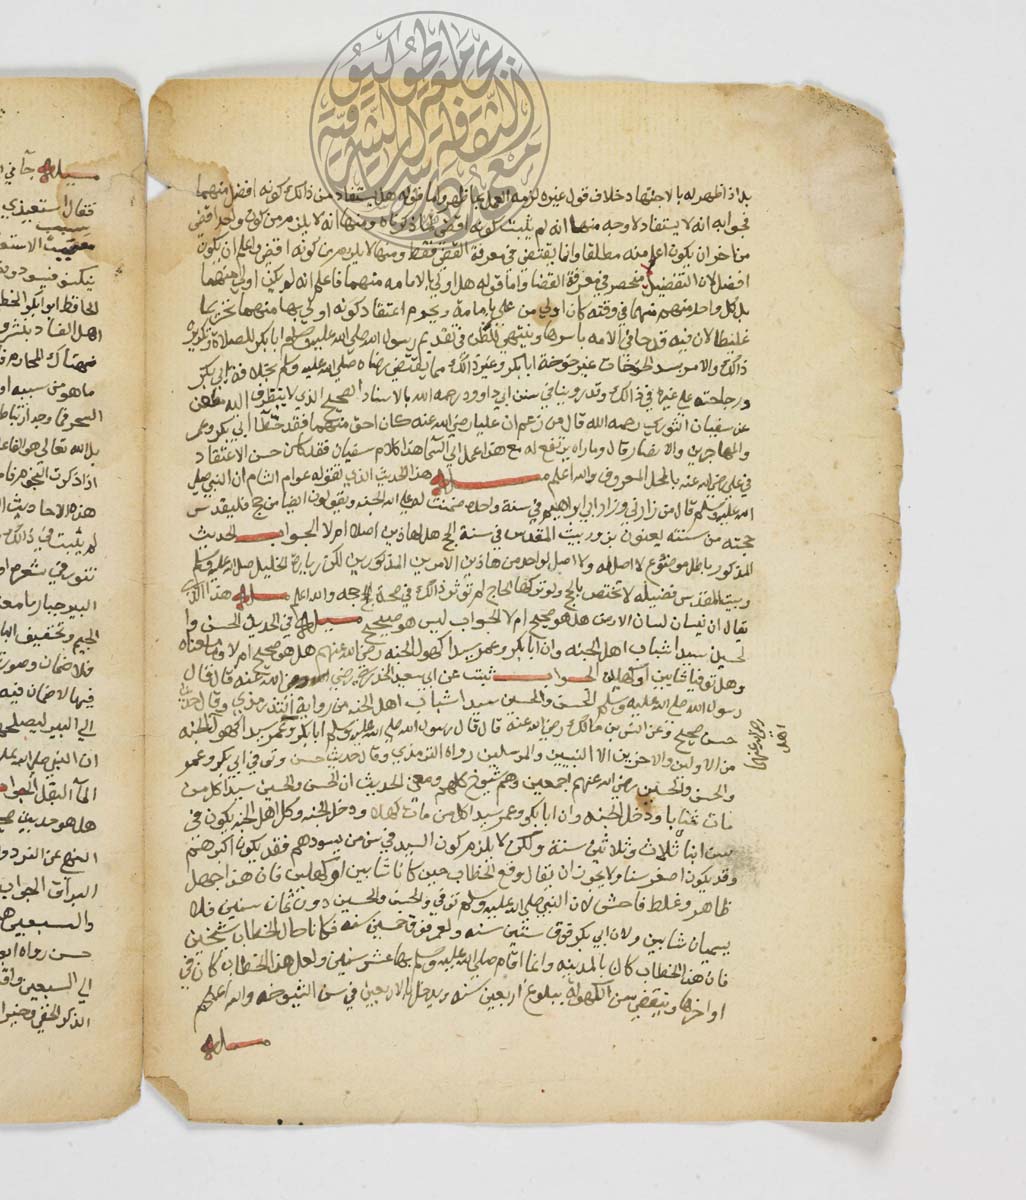 بل اذا ظهر له بالاجتهاد خلاف قول غيره لزمه العمل بما ظهر واما قوله هل يستفاد من ذالك كونه افضل منهما
فجوابه انه لا يستفاد لاوجه منها انه لم يثبت كونه اقضى لما ذكرناه ومنها انه لا يلزم من كون واحد اقضى
من اخر ان يكون اعلم منه مطلقا وانما يقتضي في معرفة القضى فقط ومنها لا يلزم من كونه اقضى واعلم ان يكون
افضل لان التفضيل منحصر في معرفة القضا واما قوله هل اولى بالامامه منهما فاعلم انه لم يكن اولى منهما
بل كل واحد منهم منهما في وقته كان اولى من علي بالامامة ويحرم اعتقاد كونه اولى بها منهما
غلطا لان فيه قدحا في الامه باسرها وينتهي للطعن في تقديم رسول الله صلى الله عليه وسلم ابا بكر للصلاة وتكريره
ذالك والامر بسد الخوخات غير خوخة ابا بكر وغير ذالك مما يقتضي رضاه صلى الله عليه وسلم بخلافة ابي بكر
ورجاحته على غيره في ذالك وقد روينا في سنن ابي داوود رحمه الله بالاسناد الصحيح الذي لا يتطرف اليه طعن
عن سفيان الثوري رحمه الله قال من زعم ان عليا رضي الله عنه كان احق منهما فقد خطأ ابي بكر وعمر
والمهاجرين والانصار قال وما اراه يرتفع له مع هذا عمل الى السما هذا كلام سفيان فقد كان حسن الاعتقاد
في علي رضي الله عنه بالمحل المعروف والله اعلم مسـله هذا الحديث الذي تقوله عوام الشام ان النبي صلى
الله عليه وسلم قال من زارني وزار ابي ابراهيم في سنة واحده ضمنت له على الله الجنه ويقولون ايضا من حج فليقدس
حجته من سنته يعنون يزور بيت المقدس في سنة الحج هل لهاذين اصلا ام لا الجواب الحديث
المذكور باطل موضوع لا اصل له ولا اصل لواحد من هاذين الامرين المذكورين لكن زيارة الخليل صلى الله عليه وسلم
وبيت المقدس فضيله لا تختص بالحج ولو تركها الحاج لم توثر ذالك في صحة حجه والله اعلم مسـله هذا الذي
يقال ان نيسان لسان الارض هل هو صحيح ام لا الجواب ليس هو صحيح مسـله في الحديث الحسن وا
لحسين سيدا شباب اهل الجنه وان ابا بكر وعمر سيدا كهول الجنه رضي الله عنهم هل هو صحيح ام لا وما معناه
وهل توفيا شابين او كهلين الجواب ثبت عن ابي سعيد الخدري رضي الله عنه قال قال
رسول الله صلى الله عليه وسلم الحسن والحسين سيدا شباب اهل الجنه من رواية الترمذي وقال حديث
حسن صحيح وعن انس بن مالك رضي الله عنه قال قال رسول الله صلى الله عليه وسلم ابا بكر وعمر سيدا كهول الجنه
من الاولين والاخرين الا النبيين والمرسلين رواه الترمذي وقال حديث حسن وتوفي ابي بكر وعمر
والحسن والحسين رضي الله عنهم اجمعين وهم شيوخ كلهم ومعنى الحديث ان الحسن والحسين سيدا كل من
مات شابا ودخل الجنه وان ابا بكر وعمر سيدا كل من مات كهلا ودخل الجنه وكل اهل الجنه يكون في
سن ابنا ثلاث وثلاثين سنة ولكن لا يلزم كون السيد في سن من يسودهم فقد يكون اكبر منهم
وقد يكون اصغر سنا ولا يجوز ان يقال وقع الخطاب حين كانا شابين او كهلين فان هذا جهل
ظاهر وغلط فاحش لان النبي صلى الله عليه وسلم توفي والحسن والحسين دون ثمان سنين فلا
يسميان شابين ولان ابي بكر فوق ستين سنه ولعمر فوق خمسين سنه فكانا حال الخطاب شيخين
فان هذا الخطاب كان بالمدينه وانما اقام صلى الله عليه وسلم بها عشر سنين ولعل هذا الخطاب كان في
اواخرها وينقضي سن الكهوله ببلوغ اربعين سنه ويدخل بالاربعين في سن الشيوخه والله اعلم
مسـله
اهل
رضي الله عنهما
مسـله جا في
فقال استعيذي
الحافظ ابو بكر الخط
ما هو من سببه او
بل الله تعالى هو الفاعل
هذه الاحاديث
لم يثبت في ذالك
الجيم وتخفيف البا
فلا ضمان وصورة
فيها لا ضمان فيه
ان النبي صلى الله علـ
هل هو حديث صحـ
والسبعين هـ
حسن رواه ابو
الي السبعين واقـ
الذكر الخفي وخير